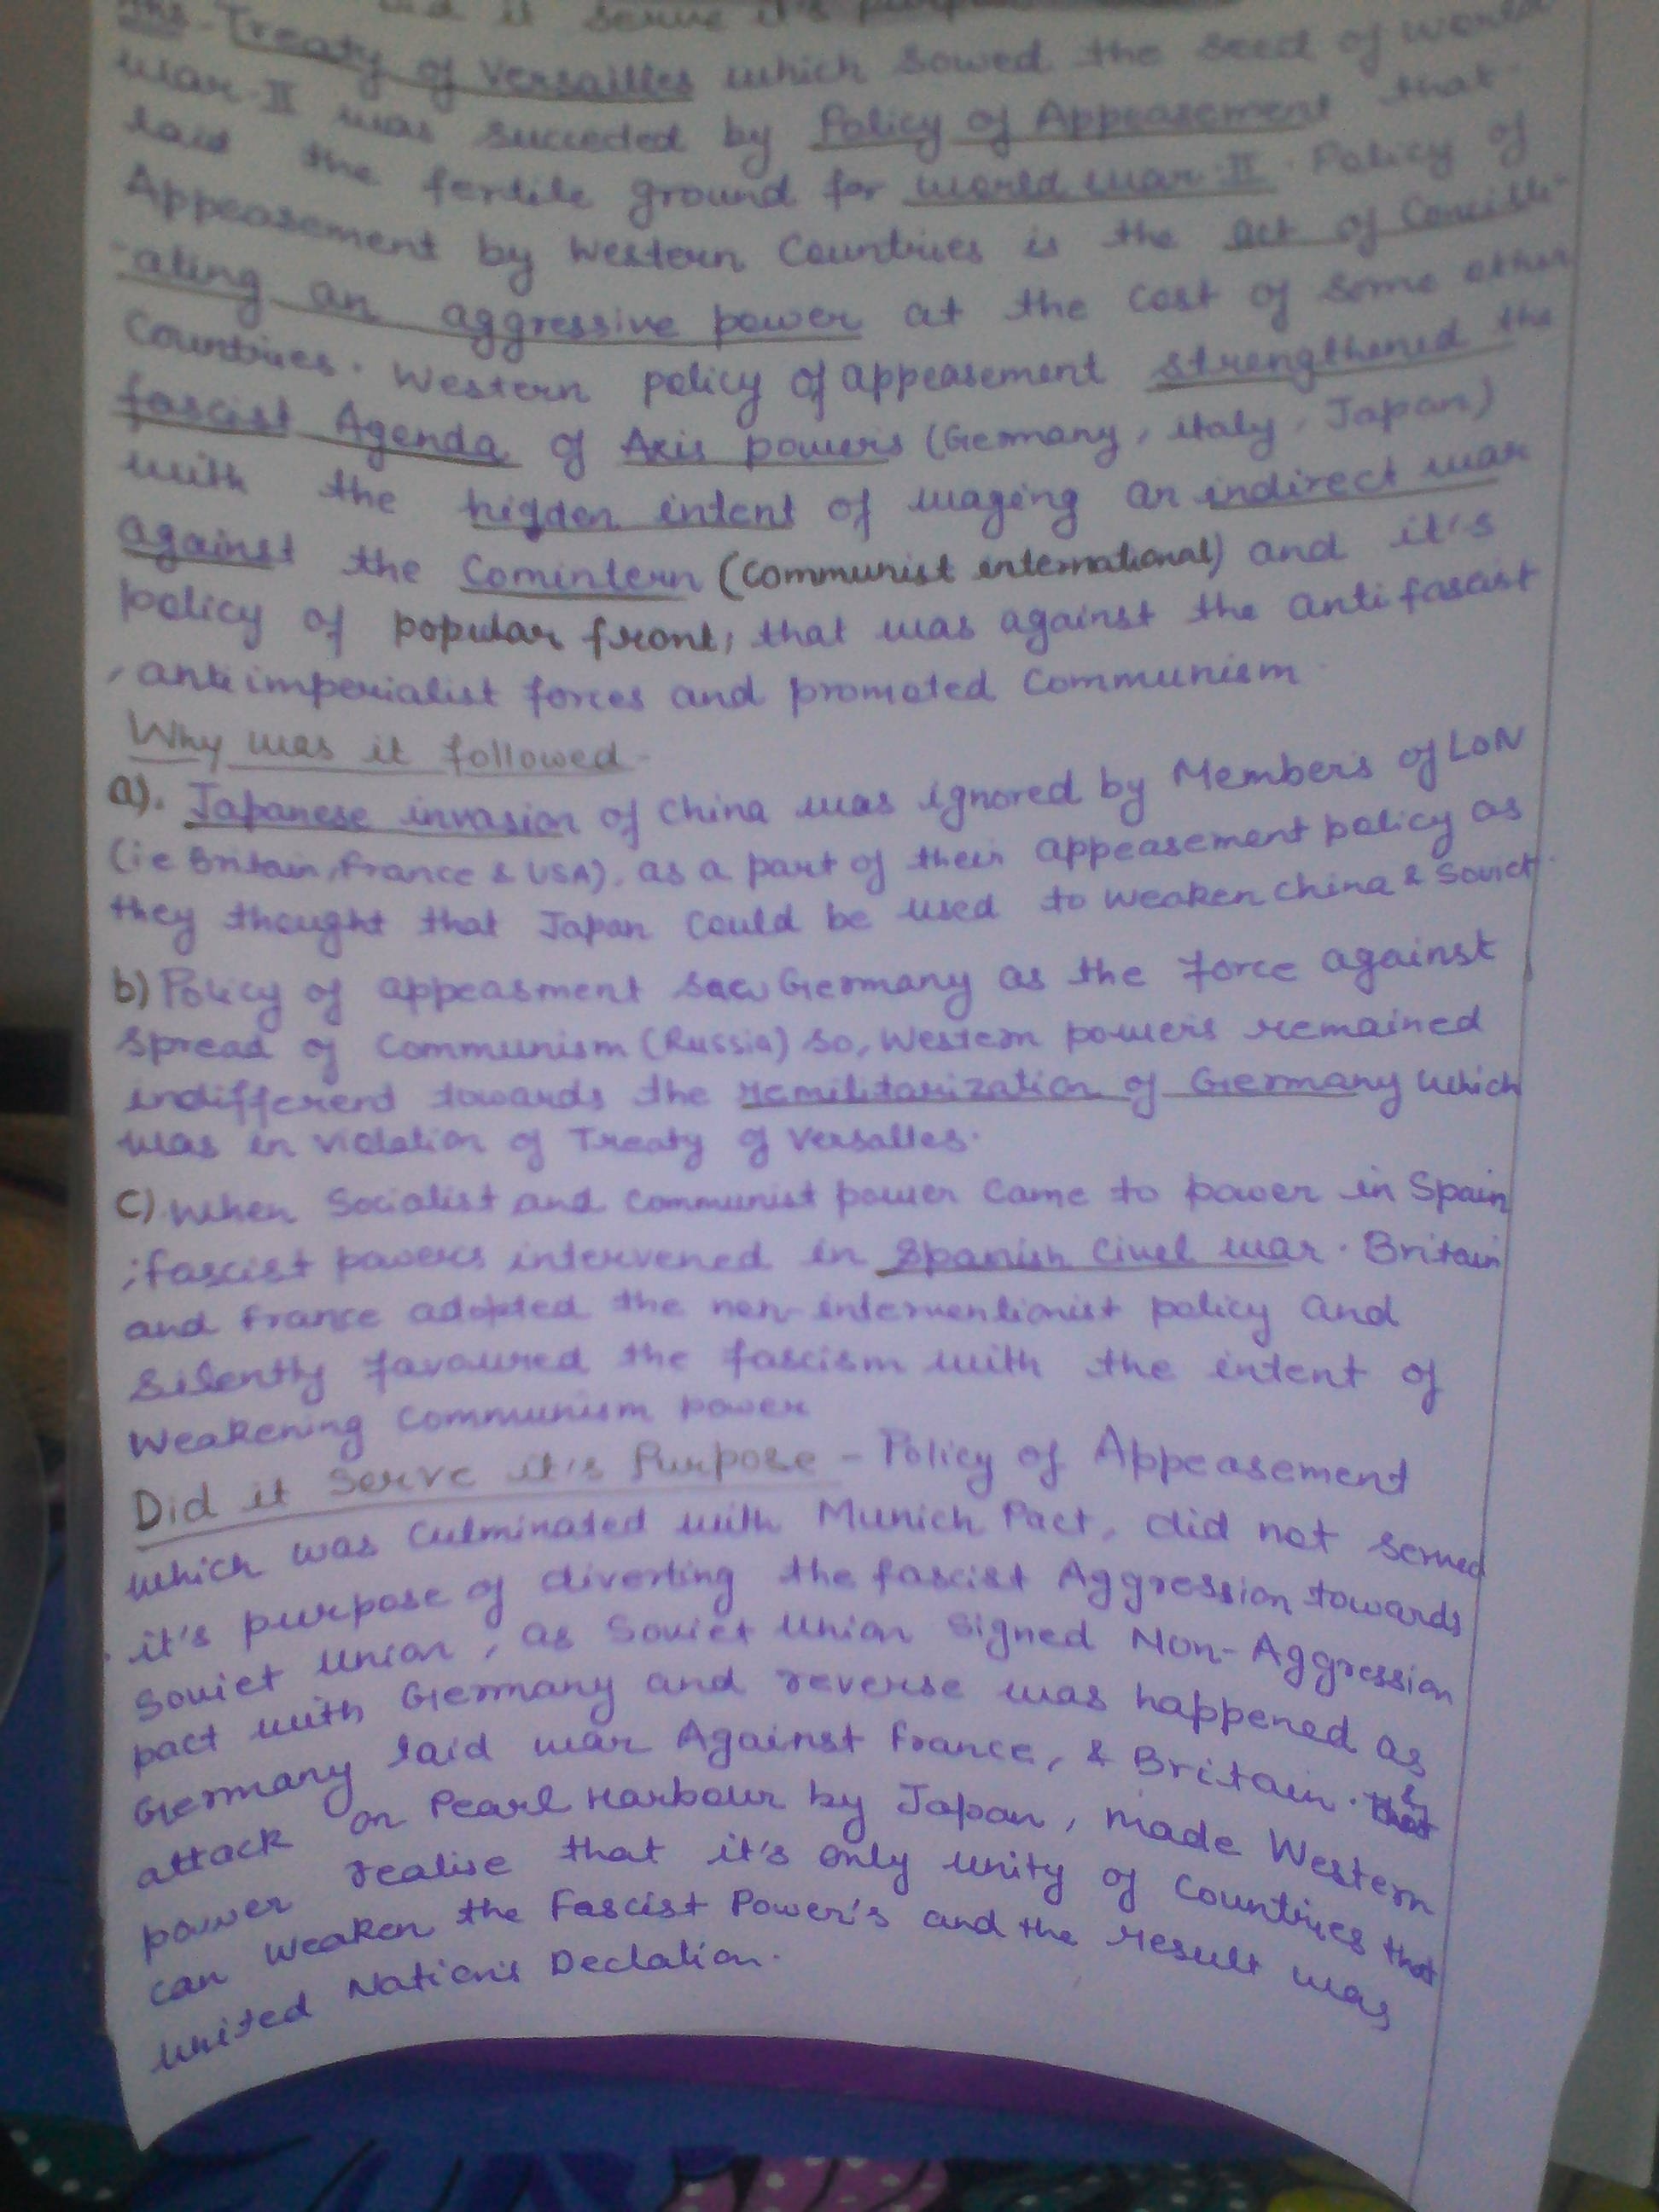 did it serve it's purpose
Ans - Treaty of Versailles which sowed the seed of world
war-II was succeded by Policy of Appeasement that
laid the fertile ground for world war-II. Policy of
Appeasement by Western Countries is the act of Concili-
-ating an aggressive power at the cost of some other
Countries. Western policy of appeasement strengthened the
fascist Agenda of Axis powers (Germany, Italy, Japan)
with the hidden intent of waging an indirect war
against the Comintern (Communist international) and it's
policy of popular front, that was against the anti fascist
, anti imperialist forces and promoted Communism.
Why was it followed -
a). Japanese invasion of China was ignored by Members of LON
(ie Britain, France & USA), as a part of their appeasement policy as
they thought that Japan could be used to weaken china & Soviet.
b) Policy of appeasment saw Germany as the force against
spread of Communism (Russia) so, Western powers remained
indifferend towards the remilitarization of Germany which
was in violation of Treaty of Versalles.
C) When Socialist and Communist power came to power in Spain
; fascist powers intervened in Spanish Civel war. Britain
and France adopted the non-interventionist policy and
Silently favoured the fascism with the intent of
Weakening Communism power
Did it Serve it's Purpose - Policy of Appeasement
which was culminated with Munich Pact, did not served
it's purpose of diverting the fascist Aggression towards
Soviet Union, as Soviet Union signed Non-Aggression
pact with Germany and reverse was happened as
Germany laid war Against France, & Britain. &
attack on Pearl Harbour by Japan, made Western
power realise that it's only unity of Countries that
can weaken the Fascist Power's and the result was
United Nation's Declation.